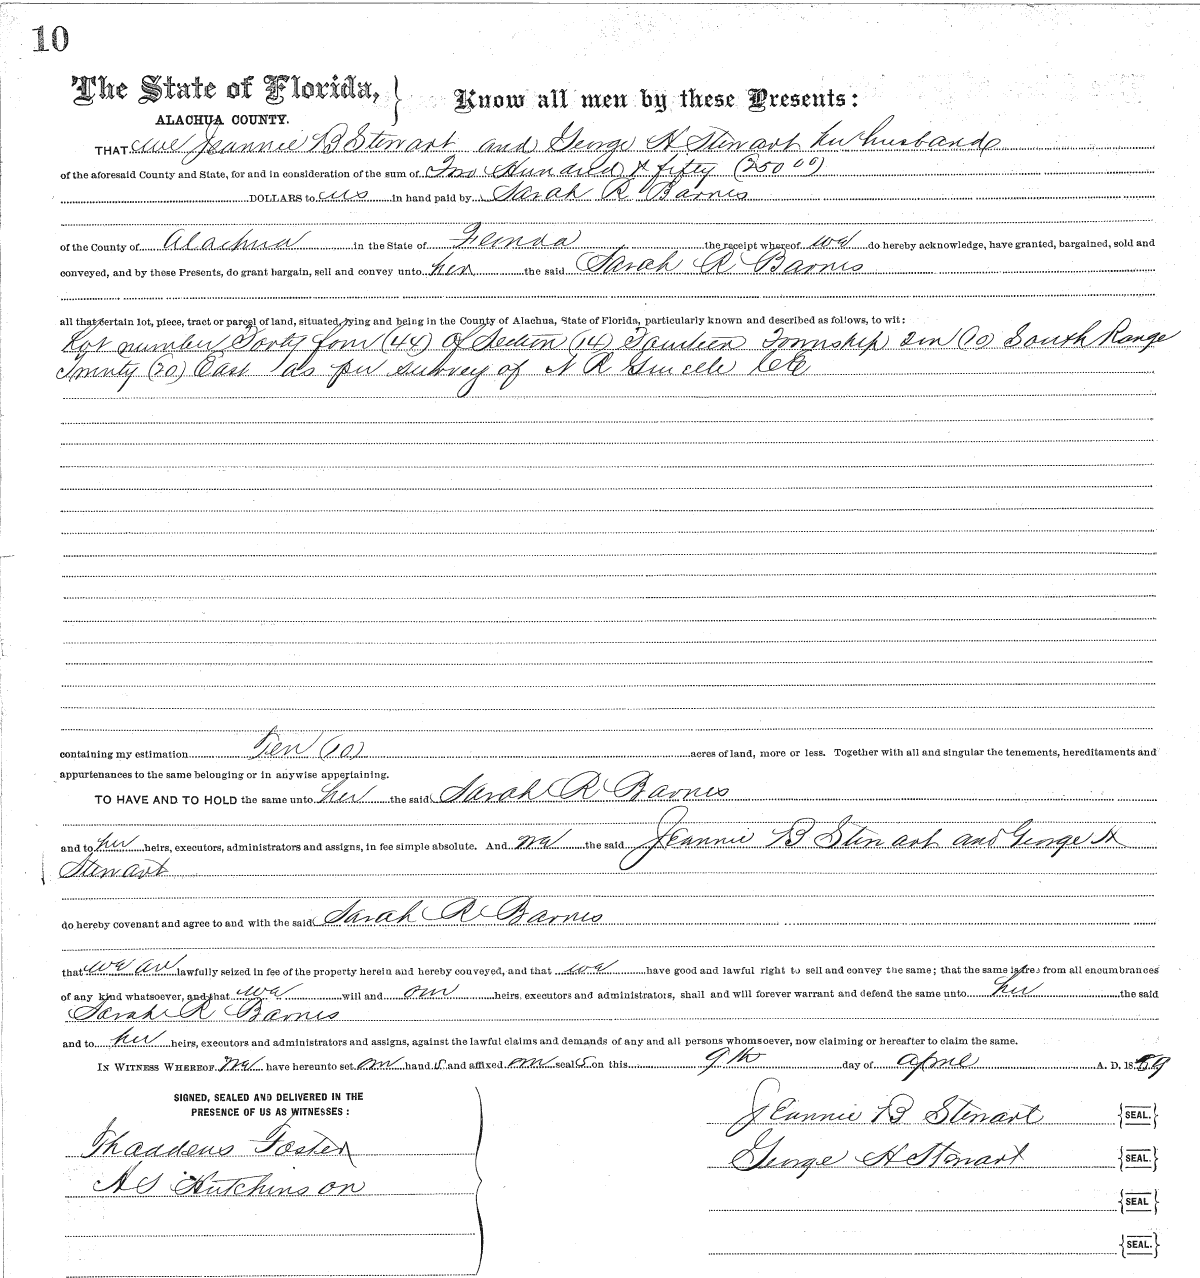 10
The State of Florida,
ALACHUA COUNTY.
Know all men by these Presents:
THAT we Jeannie B Stewart and George H Stewart her husband
of the aforesaid County and State, for and in consideration of the sum of Two Hundred & fifty (250 00)
DOLLARS to us in hand paid by Sarah R Barnes
of the County of Alachua in the State of Florida the receipt whereof we do hereby acknowledge, have granted, bargained, sold and
conveyed, and by these Presents, do grant bargain, sell and convey unto her the said Sarah R Barnes
all that certain lot, piece, tract or parcel of land, situated, lying and being in the County of Alachua, State of Florida, particularly known and described as follows, to wit:
Lot number Forty four (44) of Section (14) Fourteen Township ten (10) South Range
Twenty (20) East as per survey of N R
containing my estimation Ten (10) acres of land, more or less. Together with all and singular the tenements, hereditaments and
appurtenances to the same belonging or in anywise appertaining.
TO HAVE AND TO HOLD the same unto her the said Sarah R Barnes
and to her heirs, executors, administrators and assigns, in fee simple absolute. And we the said Jeannie B Stewart and George H
Stewart
do hereby covenant and agree to and with the said Sarah R Barnes
that we are lawfully seized in fee of the property herein and hereby conveyed, and that we have good and lawful right to sell and convey the same; that the same is free from all encumbrances
of any kind whatsoever, and that we will and our heirs, executors and administrators, shall and will forever warrant and defend the same unto her the said
Sarah R Barnes
and to her heirs, executors and administrators and assigns, against the lawful claims and demands of any and all persons whomsoever, now claiming or hereafter to claim the same.
IN WITNESS WHEREOF we have hereunto set our hand s and affixed our seal s on this 9th day of April A. D. 1889
SIGNED, SEALED AND DELIVERED IN THE
PRESENCE OF US AS WITNESSES:
Jeannie B Stewart {SEAL.}
Thaddeus Foster
George H Stewart {SEAL.}
H S Hutchinson
{SEAL}
{SEAL.}